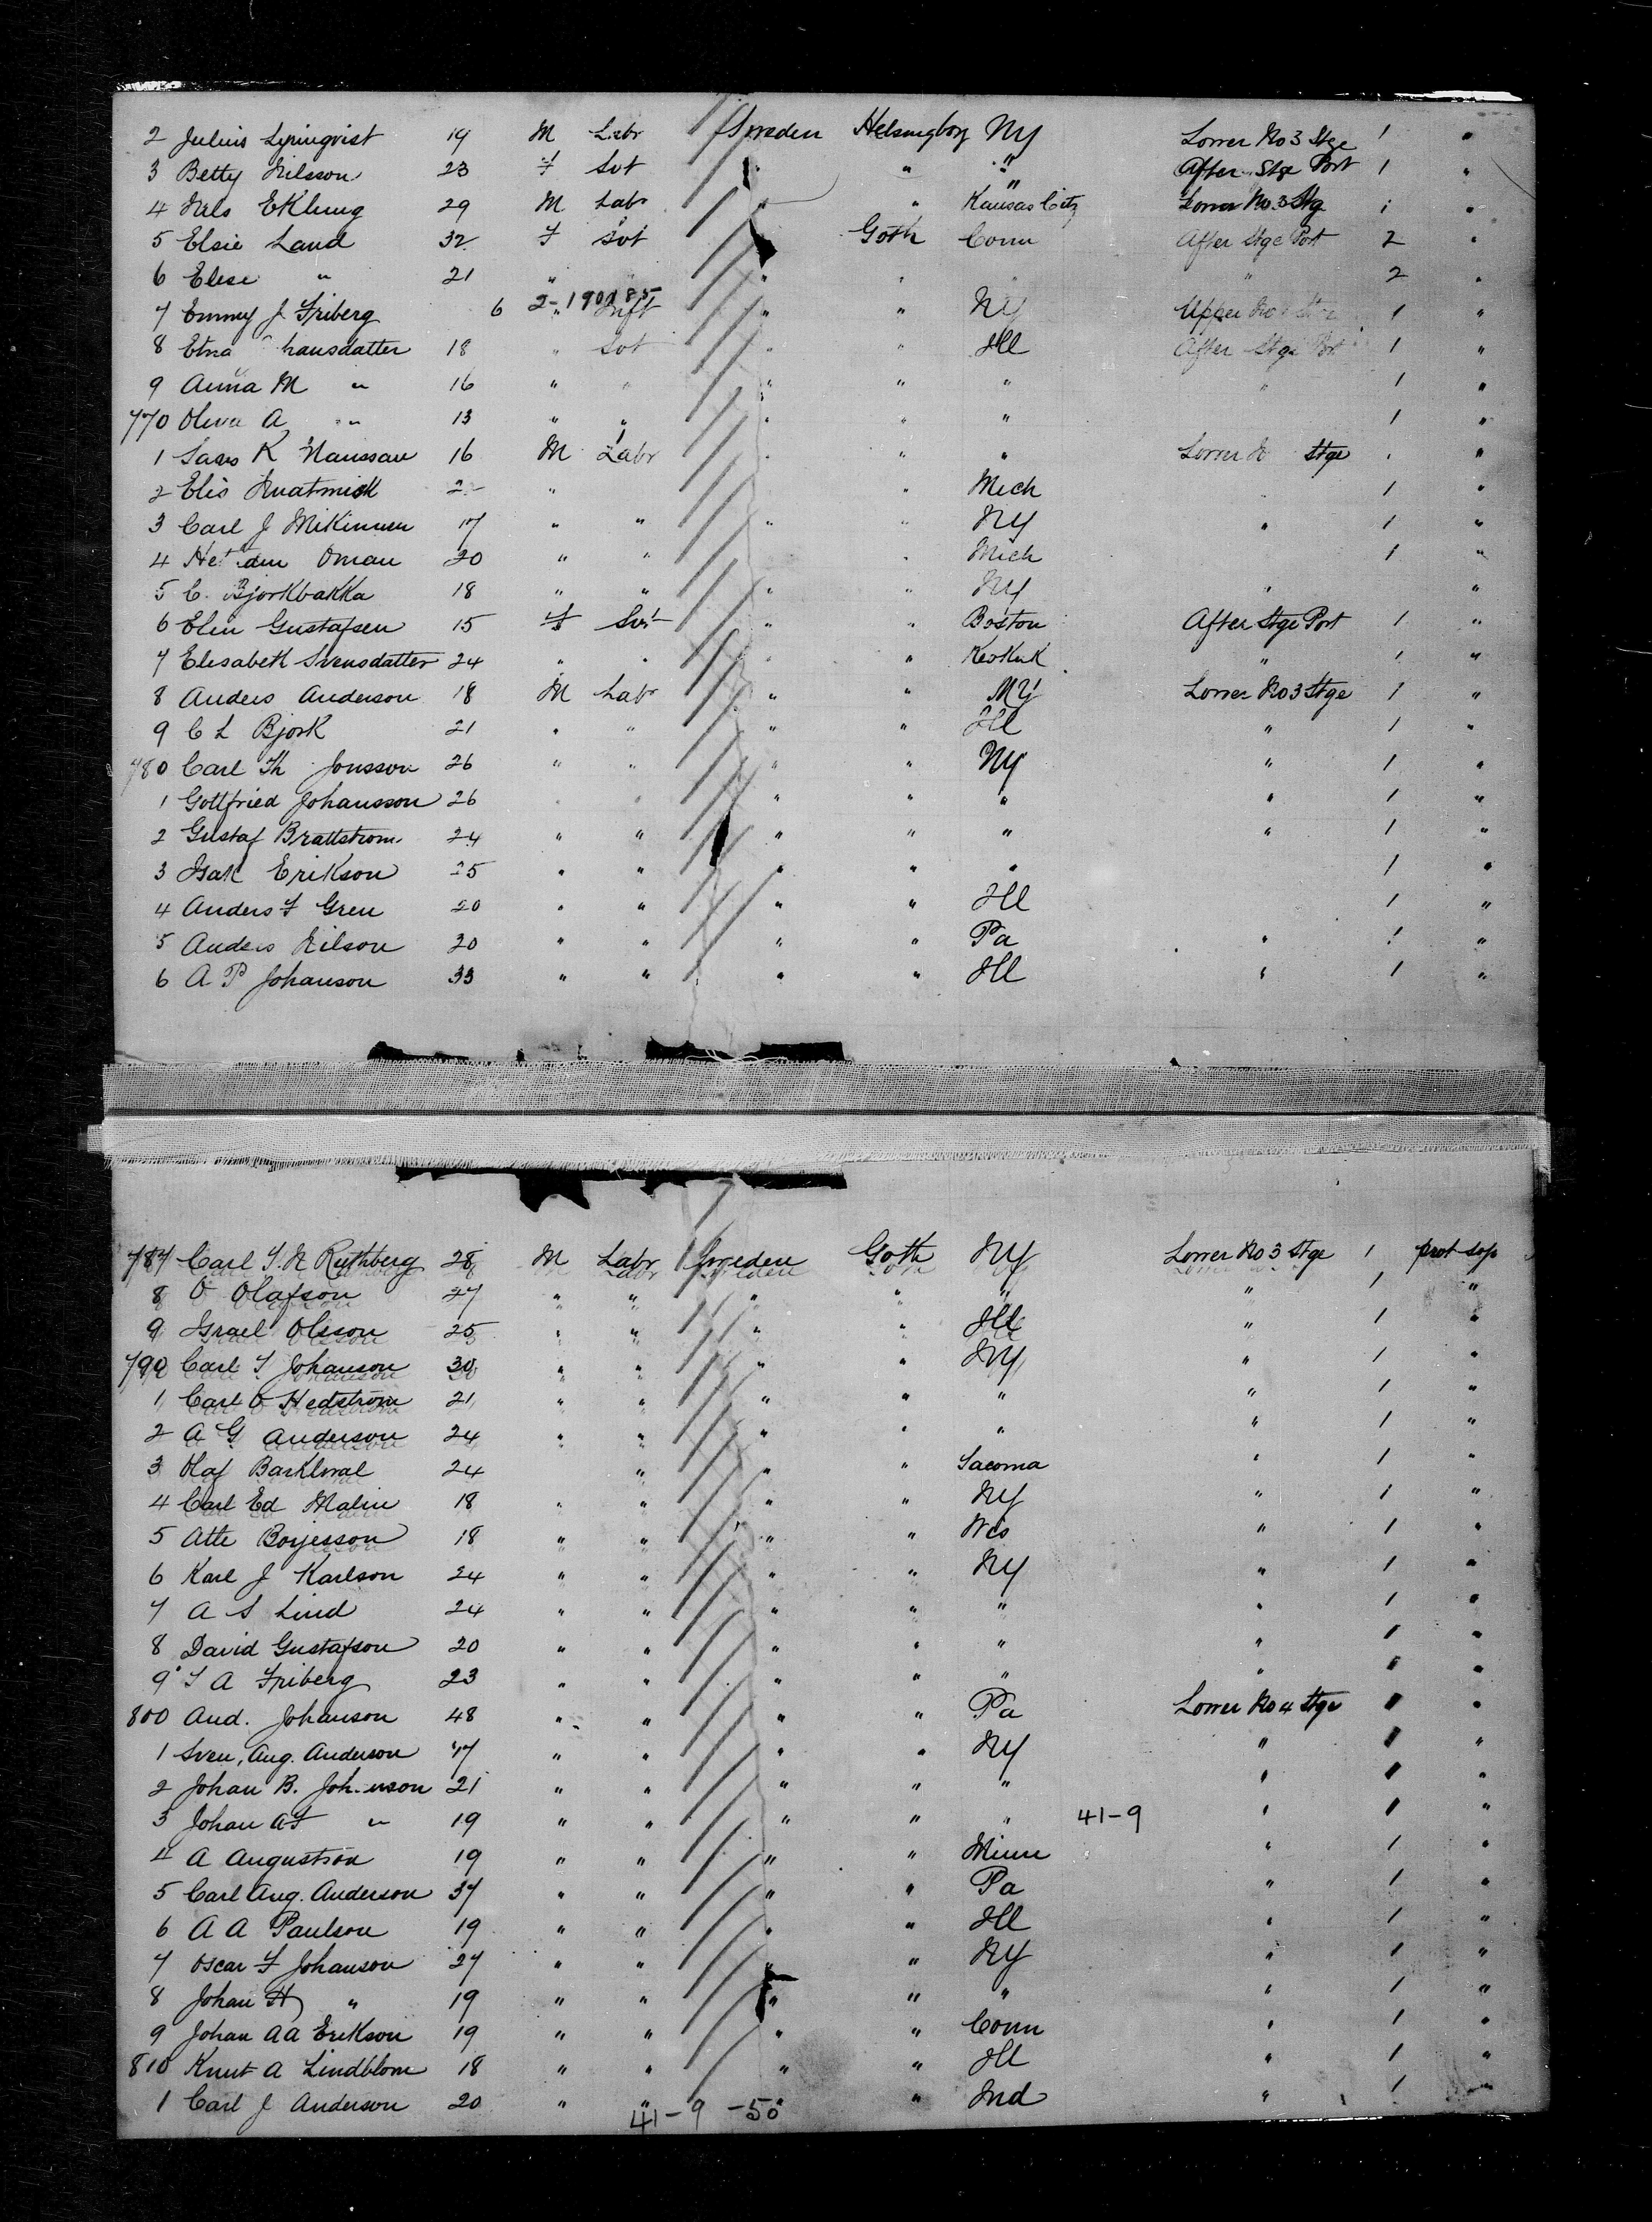 2 Julius Ljungqvist 19 M Labr Sweden Helsingborg NY Lower No 3 Stge 1 "
3 Betty Nilsson 23 F Svt " " " After Stge Port 1 "
4 Nels Eklung 29 M Labr " " Kansas City Lower No. 3 Stg 1 "
5 Elsie Land 32 F Svt " Goth Conn After Stge Port 2 "
6 Elese " 21 " " " " " " 2 "
7 Emmy J Friberg 6 2-190185 " Inft " " NY Upper No Stge 1 "
8 Etna hansdatter 18 " Svt " " Ill After Stge Pt 1 "
9 Anna M " 16 " " " " " " 1 "
770 Oliva A " 13 " " " " " 1 "
1 K Hanssan 16 M Labr " " " Lower Stge " "
2 Elis 2 " " Mich " 1 "
3 Carl J Mikinnen 17 " " " " NY " 1 "
4 Oman 20 " " " Mich 1 "
5 C. Bjorkbakka 18 " " " " NY " "
6 Elin Gustafsen 15 F Svt " " Boston After Stge Port 1 "
7 Elisabeth Svensdatter 24 " " " " Keokuk " 1 "
8 Anders Anderson 18 M Labr " " NY Lower No 3 Stge 1 "
9 C L Bjork 21 " " " " Ill " 1 "
780 Carl Th Jonsson 26 " " " " NY " 1 "
1 Gottfried Johansson 26 " " " " " " 1 "
2 Gustaf Brattstrom 24 " " " " " " 1 "
3 Isak Erikson 25 " " " " " 1 "
4 Anders F Gren 20 " " " " Ill 1 "
5 Anders Nilson 20 " " " " Pa " 1 "
6 A P Johanson 33 " " " " Ill " 1 "
787 Carl F. N Ruthberg 28 M Labr Sweden Goth NY Lower No 3 Stge 1 prot sop
8 O Olafson 27 " " " " " " 1 "
9 Israel Olsson 25 " " " " Ill " 1 "
790 Carl F Johanson 30 " " " " NY " 1 "
1 Carl O Hedstrom 21 " " " " " " 1 "
2 A G Anderson 24 " " " " " " 1 "
3 Olaf 24 " " " Tacoma " 1 "
4 Carl Ed Malin 18 " " " " NY " 1 "
5 Atte Borjesson 18 " " " " Wis " 1 "
6 Karl J Karlson 24 " " " " NY " 1 "
7 A S Lind 24 " " " " " " 1 "
8 David Gustafson 20 " " " " " " 1 "
9 F A Friberg 23 " " " " " " 1 "
800 And. Johanson 48 " " " " Pa Lower No 4 Stge 1 "
1 Sven, Aug. Anderson 47 " " " " NY " 1 "
2 Johan B. Johanson 21 " " " " " " 1 "
3 Johan A F " 19 " " " " " 41-9 " 1 "
4 A Augustson 19 " " " " Minn " 1 "
5 Carl Aug. Anderson 37 " " " " Pa " 1 "
6 A A Paulson 19 " " " " Ill " 1 "
7 Oscar F Johanson 27 " " " " NY " 1 "
8 Johan H " 19 " " " " " " 1 "
9 Johan A A Erikson 19 " " " " Conn " 1 "
810 Knut A Lindblom 18 " " " " Ill " 1 "
1 Carl J Anderson 20 " " " " Ind " 1 "
41-9 -50